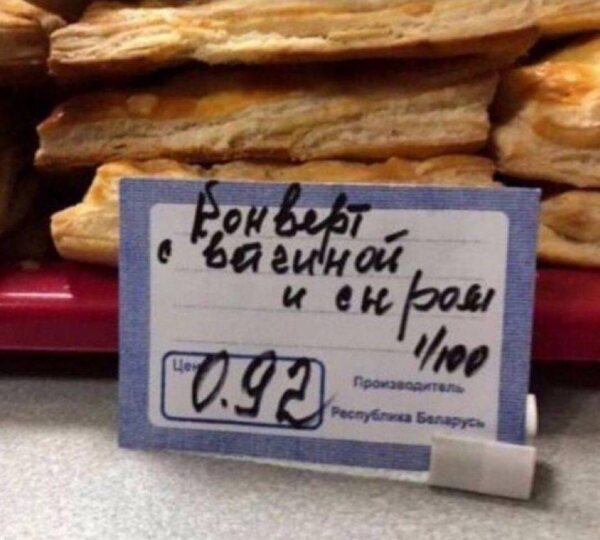 Конверт
с вагиной
и сыром
1/100
Цен
0.92
Производитель
Республика Беларусь